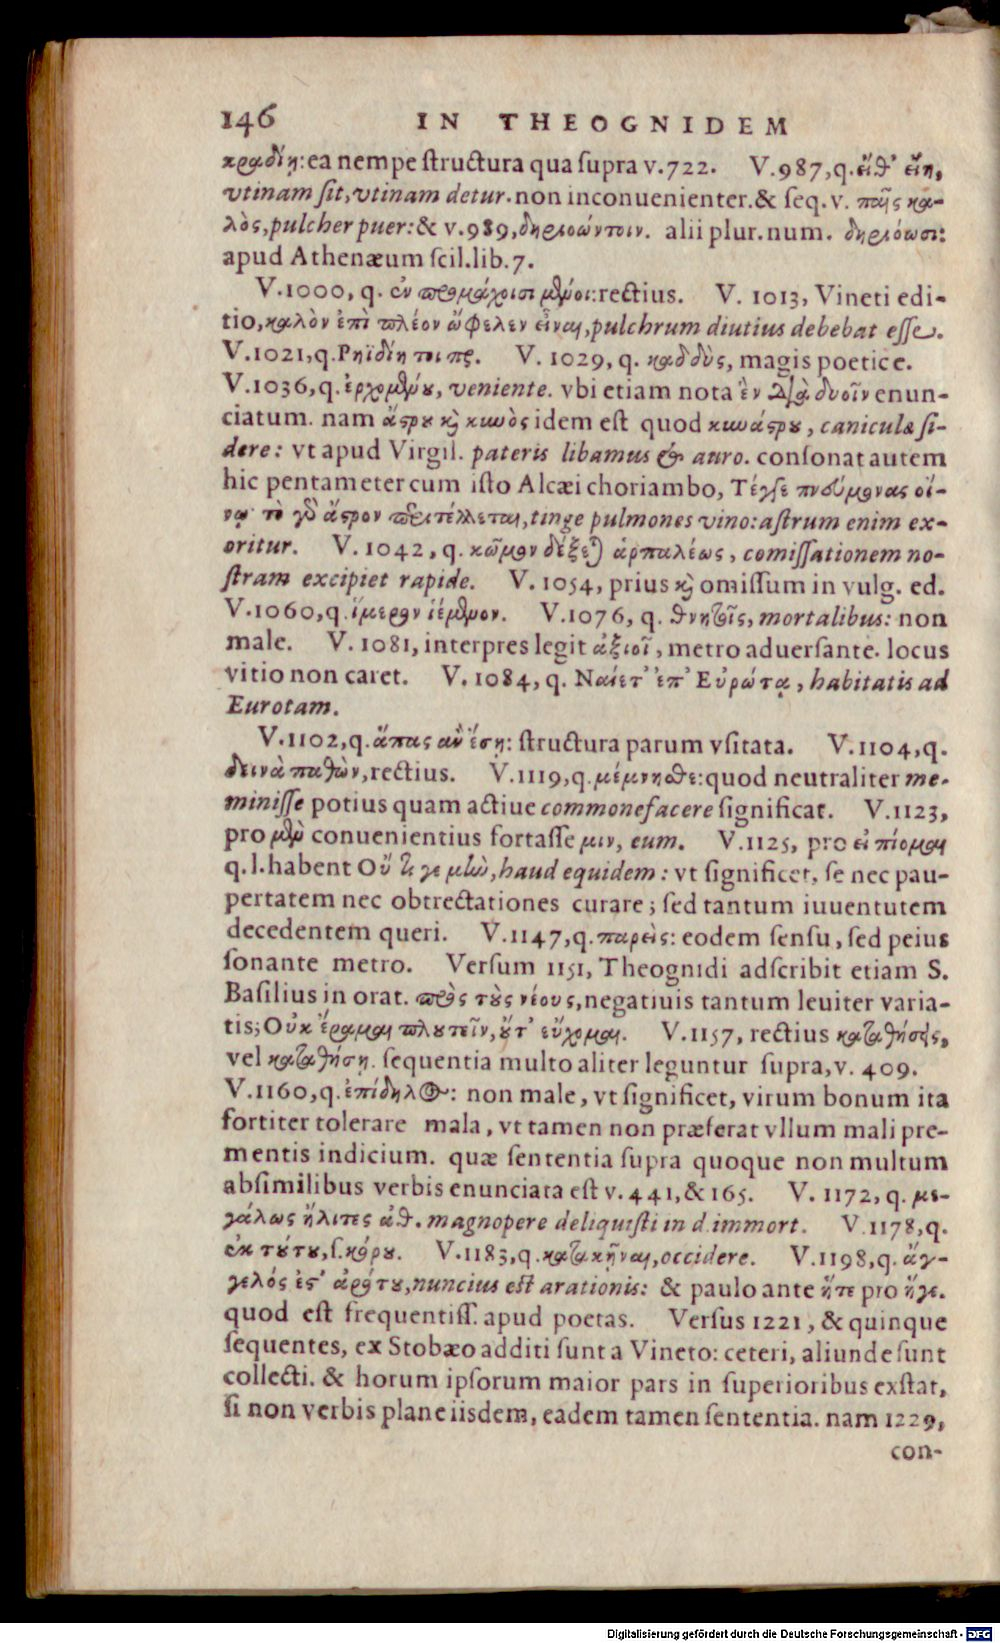 146 IN THEOGNIDEM
κραδίη: ea nempe ſtructura qua ſupra v.722. V.987, q. εἴθ' εἴη,
vtinam ſit, vtinam detur. non inconuenienter. & ſeq. v. παῖς κα-
λὸς, pulcher puer: & v.989, δηριοώντοιν. alii plur. num. δηριόωσι:
apud Athenæum ſcil. lib. 7.
V.1000, q. ἐν προμάχοισι μένοι: rectius. V. 1013, Vineti edi-
tio, καλὸν ἐπὶ πλέον ὤφελεν εἶναι, pulchrum diutius debebat eſſe.
V.1021, q. Ρηϊδίη τοι πρ. V. 1029, q. καδδὺς, magis poetice.
V.1036, q. ἐρχομένου, veniente. vbi etiam nota ἓν διὰ δυοῖν enun-
ciatum. nam ἄστρου καὶ κυνὸς idem eſt quod κυνάστρου, caniculæ ſi-
dere: vt apud Virgil. pateris libamus & auro. conſonat autem
hic pentameter cum iſto Alcæi choriambo, Τέγγε πνεύμονας οἴ-
νῳ· τὸ γὰρ ἄστρον περιτέλλεται, tinge pulmones vino: aſtrum enim ex-
oritur. V. 1042, q. κῶμον δέξεται ἁρπαλέως, comiſſationem no-
ſtram excipiet rapide. V. 1054, prius καὶ omiſſum in vulg. ed.
V.1060, q. ἵμερον ἱέμενον. V.1076, q. θνητοῖς, mortalibus: non
male. V. 1081, interpres legit ἀξιοῖ, metro aduerſante. locus
vitio non caret. V. 1084, q. Ναίετ' ἐπ' Εὐρώτᾳ, habitatis ad
Eurotam.
V.1102, q. ἅπας ἂν ἔσῃ: ſtructura parum vſitata. V.1104, q.
δεινὰ παθὼν, rectius. V.1119, q. μέμνησθε: quod neutraliter me-
miniſſe potius quam actiue commonefacere ſignificat. V.1123,
pro μὲν conuenientius fortaſſe μιν, eum. V.1125, pro εἰ πίομαι
q. l. habent Οὔ τι γε μὴν, haud equidem: vt ſignificet, ſe nec pau-
pertatem nec obtrectationes curare; ſed tantum iuuentutem
decedentem queri. V.1147, q. παρεὶς: eodem ſenſu, ſed peius
ſonante metro. Verſum 1151, Theognidi adſcribit etiam S.
Baſilius in orat. πρὸς τοὺς νέους, negatiuis tantum leuiter varia-
tis; Οὐκ ἔραμαι πλουτεῖν, οὔτ' εὔχομαι. V.1157, rectius καταθήσεις,
vel καταθήσῃ. ſequentia multo aliter leguntur ſupra, v. 409.
V.1160, q. ἐπίδηλος: non male, vt ſignificet, virum bonum ita
fortiter tolerare mala, vt tamen non præferat vllum mali pre-
mentis indicium. quæ ſententia ſupra quoque non multum
abſimilibus verbis enunciata eſt v. 441, & 165. V. 1172, q. με-
γάλως ἤλιτες ἀθ. magnopere deliquiſti in d. immort. V.1178, q.
ἐκ τούτου, ſ. κόρου. V.1183, q. κατακῆναι, occidere. V.1198, q. ἄγ-
γελός ἐστ' ἀρότου, nuncius eſt arationis: & paulo ante ἥτε pro ἥγε.
quod eſt frequentiſſ. apud poetas. Verſus 1221, & quinque
ſequentes, ex Stobæo additi ſunt a Vineto: ceteri, aliunde ſunt
collecti. & horum ipſorum maior pars in ſuperioribus exſtat,
ſi non verbis plane iisdem, eadem tamen ſententia. nam 1229,
con-
Digitalisierung gefördert durch die Deutsche Forschungsgemeinschaft - DFG